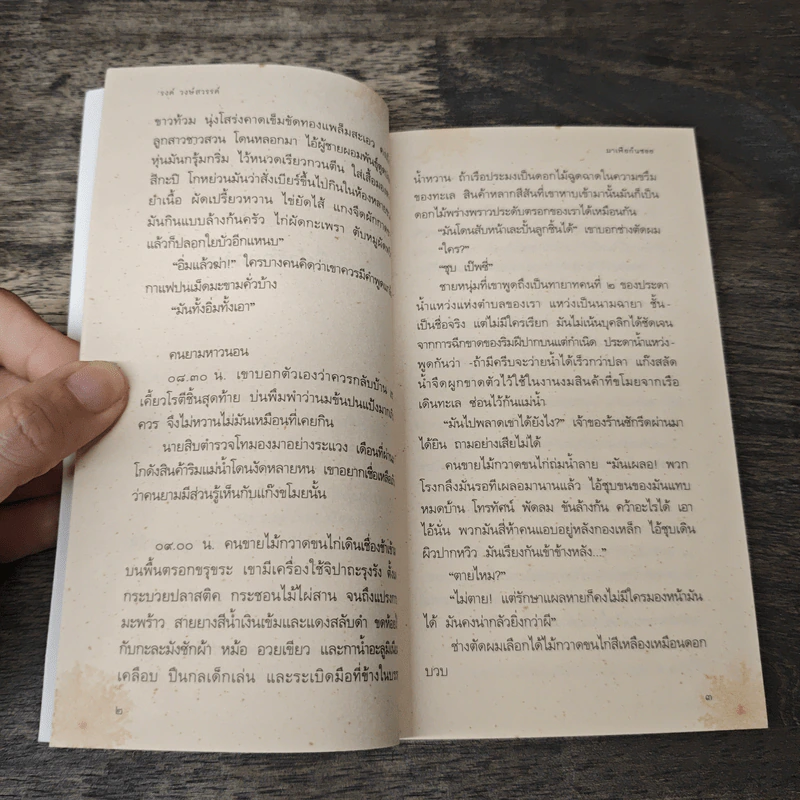 'รงค์ วงษ์สวรรค์
ขาวท้วม นุ่งโสร่งคาดเข็มขัดทองแพลึมสะเอว
ลูกสาวชาวสวน โดนหลอกมา ไอ้ผู้ชายผอมพันธุ์
หุ่นมันกรุ้มกริ่ม ไว้หนวดเรียวกวนตีน ใส่เสื้อ
สีกะปิ โกหย่วนมันว่าสั่งเบียร์ขึ้นไปกินในห้องหลาย
ยำเนื้อ ผัดเปรี้ยวหวาน ไข่ยัดไส้ แกงจืดผัก
มันกินแบบล้างก้นครัว ไก่ผัดกะเพรา ตับหมูผัด
แล้วก็ปลอกใยบัวอีกแหนบ”
“อิ่มแล้วฆ่า!” ใครบางคนคิดว่าเขาควรมีคำพูด
กาแฟปนเม็ดมะขามคั่วบ้าง
“มันทั้งอิ่มทั้งเอา”
คนยามหาวนอน
๐๘.๓๐ น. เขาบอกตัวเองว่าควรกลับบ้าน
เคี้ยวโรตีชิ้นสุดท้าย บ่นพึมพำว่านมข้นปนแป้งมาก
ควร จึงไม่หวานไม่มันเหมือนที่เคยกิน
นายสิบตำรวจโทมองมาอย่างระแวง เดือนที่ผ่าน
โกดังสินค้าริมแม่น้ำโดนงัดหลายหน เขาอยากเชื่อเหลือ
ว่าคนยามมีส่วนรู้เห็นกับแก๊งขโมยนั้น
๐๙.๐๐ น. คนขายไม้กวาดขนไก่เดินเชื่องช้าเข้า
บนพื้นตรอกขรุขระ เขามีเครื่องใช้จิปาถะรุงรัง ตั้ง
กระบวยปลาสติค กระชอนไม้ไผ่สาน จนถึงแปรง
มะพร้าว สายยางสีน้ำเงินเข้มและแดงสลับดำ ขดห้อย
กับกะละมังซักผ้า หม้อ อวยเขียว และกาน้ำอะลูมิเนียม
เคลือบ ปืนกลเด็กเล่น และระเบิดมือที่ข้างใน
๒
มาเฟียก้นซอย
น้ำหวาน ถ้าเรือประมงเป็นดอกไม้ฉูดฉาดในความขรึม
ของทะเล สินค้าหลากสีสันที่เขาหาบเข้ามานั้นมันก็เป็น
ดอกไม้พร่างพราวประดับตรอกของเราได้เหมือนกัน
“มันโดนสับหน้าและปั้นลูกชิ้นได้” เขาบอกช่างตัดผม
“ใคร?”
“ชุบ เป๊พซี่”
ชายหนุ่มที่เขาพูดถึงเป็นทายาทคนที่ ๒ ของประดา
น้ำแหว่งแห่งตำบลของเรา แหว่งเป็นนามฉายา ชั้น
เป็นชื่อจริง แต่ไม่มีใครเรียก มันไม่เน้นบุคลิกได้ชัดเจน
จากการฉีกขาดของริมฝีปากบนแต่กำเนิด ประดาน้ำแหว่ง
พูดกันว่า -ถ้ามีครีบจะว่ายน้ำได้เร็วกว่าปลา แก๊งสลัด
น้ำจืดผูกขาดตัวไว้ใช้ในงานงมสินค้าที่ขโมยจากเรือ
เดินทะเล ซ่อนไว้ก้นแม่น้ำ
“มันไปพลาดเชาได้ยังไง?” เจ้าของร้านซักรีดผ่านมา
ได้ยิน ถามอย่างเสียไม่ได้
คนขายไม้กวาดขนไก่ถ่มน้ำลาย “มันเผลอ! พวก
โรงกลึงมันรอทีเผลอมานานแล้ว ไอ้ชุบขนของมันแทบ
หมดบ้าน โทรทัศน์ พัดลม ขันล้างก้น คว้าอะไรได้ เอา
ไอ้นั่น พวกมันสี่ห้าคนแอบอยู่หลังกองเหล็ก ไอ้ชุบเดิน
ผิวปากหวิว มันเรียงกันเข้าข้างหลัง...”
“ตายไหม?”
“ไม่ตาย! แต่รักษาแผลหายก็คงไม่มีใครมองหน้ามัน
ได้ มันคงน่ากลัวยิ่งกว่าผี”
ช่างตัดผมเลือกได้ไม้กวาดขนไก่สีเหลืองเหมือนดอก
บวบ
๓